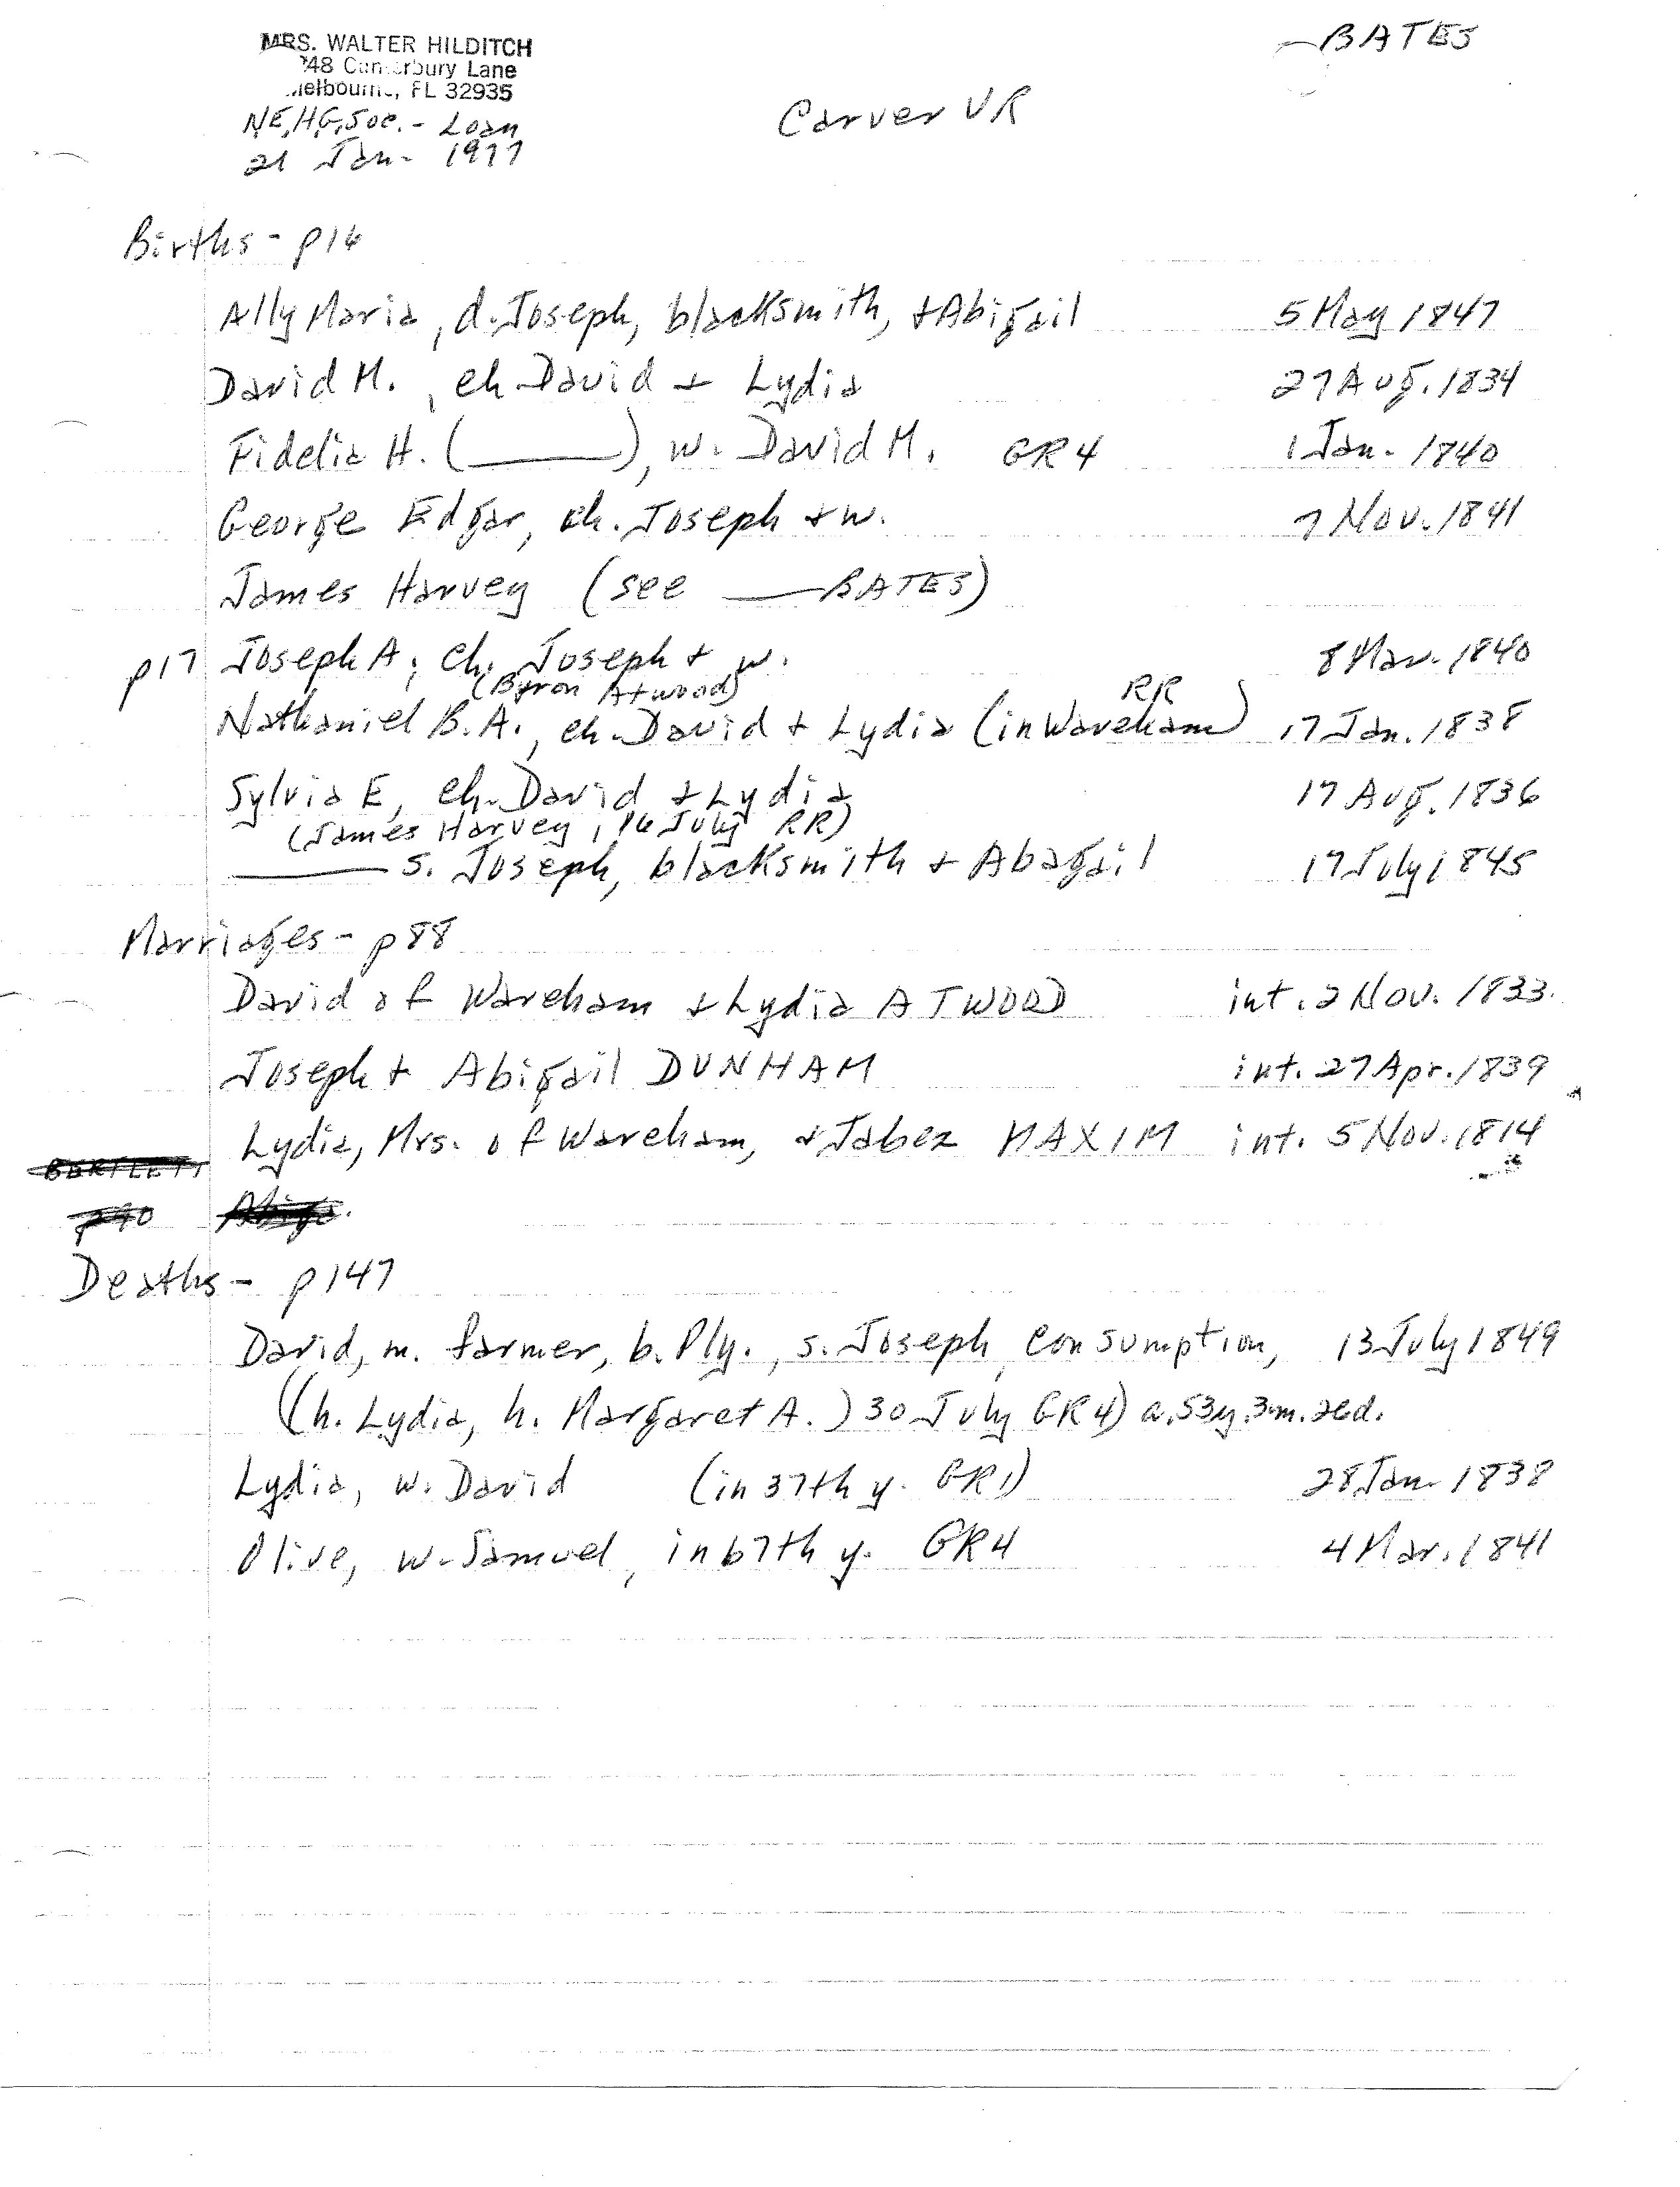 MRS. WALTER HILDITCH
Lane
FL 32935
N.E.H.G.Soc. - Loan
21 Jan. 1977
—BATES
Carver VR
Births - p16
Ally Maria, d. Joseph, blacksmith, + Abigail 5 May 1847
David M., ch. David + Lydia 27 Aug. 1834
Fidelia H. (———), w. David M. GR4 1 Jan. 1840
George Edgar, ch. Joseph + w. 7 Nov. 1841
James Harvey (see ——BATES)
p17 Joseph A., ch. Joseph + w. 8 Mar. 1840
(Byron Atwood) RR
Nathaniel B.A., ch. David + Lydia (in Wareham) 17 Jan. 1838
Sylvia E, ch. David + Lydia 17 Aug. 1836
(James Harvey, 16 July RR)
——— s. Joseph, blacksmith + Abagail 17 July 1845
Marriages - p88
David of Wareham + Lydia ATWOOD int. 2 Nov. 1833.
Joseph + Abigail DUNHAM int. 27 Apr. 1839
Lydia, Mrs. of Wareham, + Jabez MAXIM int. 5 Nov. 1814
BARTLETT
p90
Deaths - p147
David, m. farmer, b. Ply., s. Joseph, consumption, 13 July 1849
((h. Lydia, h. Margaret A.) 30 July GR4) a. 53y. 3m. 2cd.
Lydia, w. David (in 37th y. GR1) 28 Jan. 1838
Olive, w. Samuel, in 67th y. GR4 4 Mar. 1841